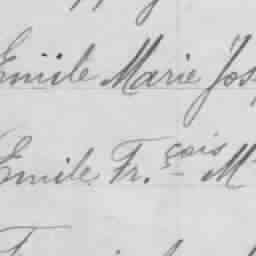 Emile Marie Jos
Emile Fr.çois M